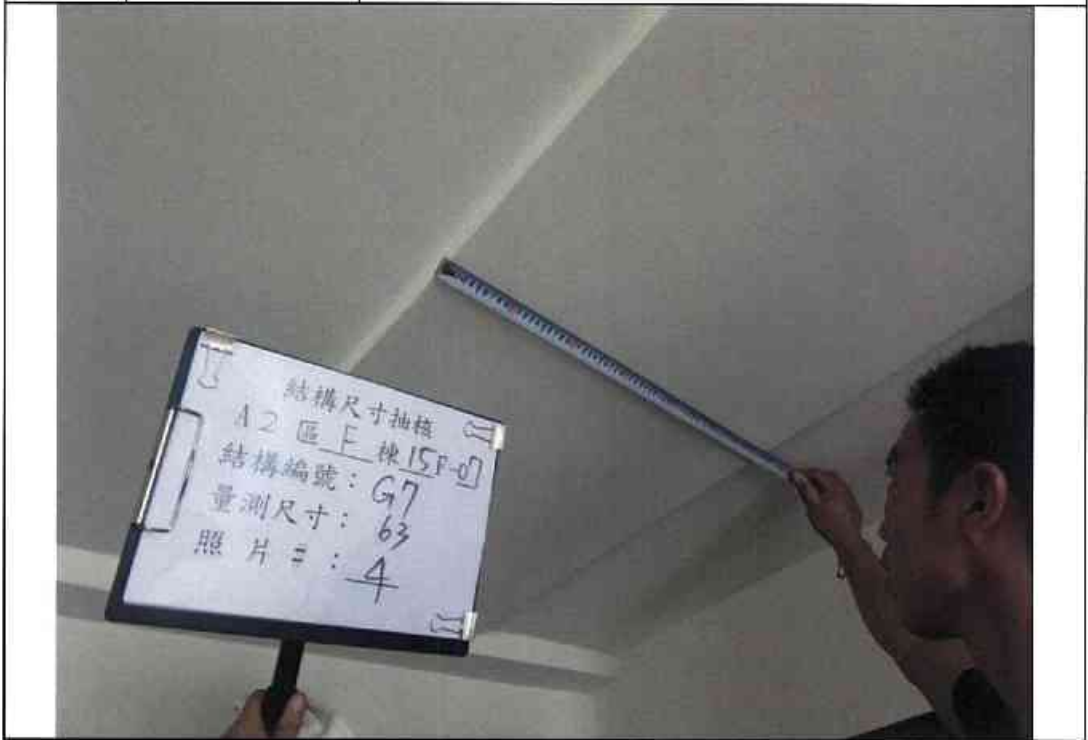 結構尺寸抽核
A2 區 F 棟 15F-07
結構編號：G7
量測尺寸：63
照片#：4